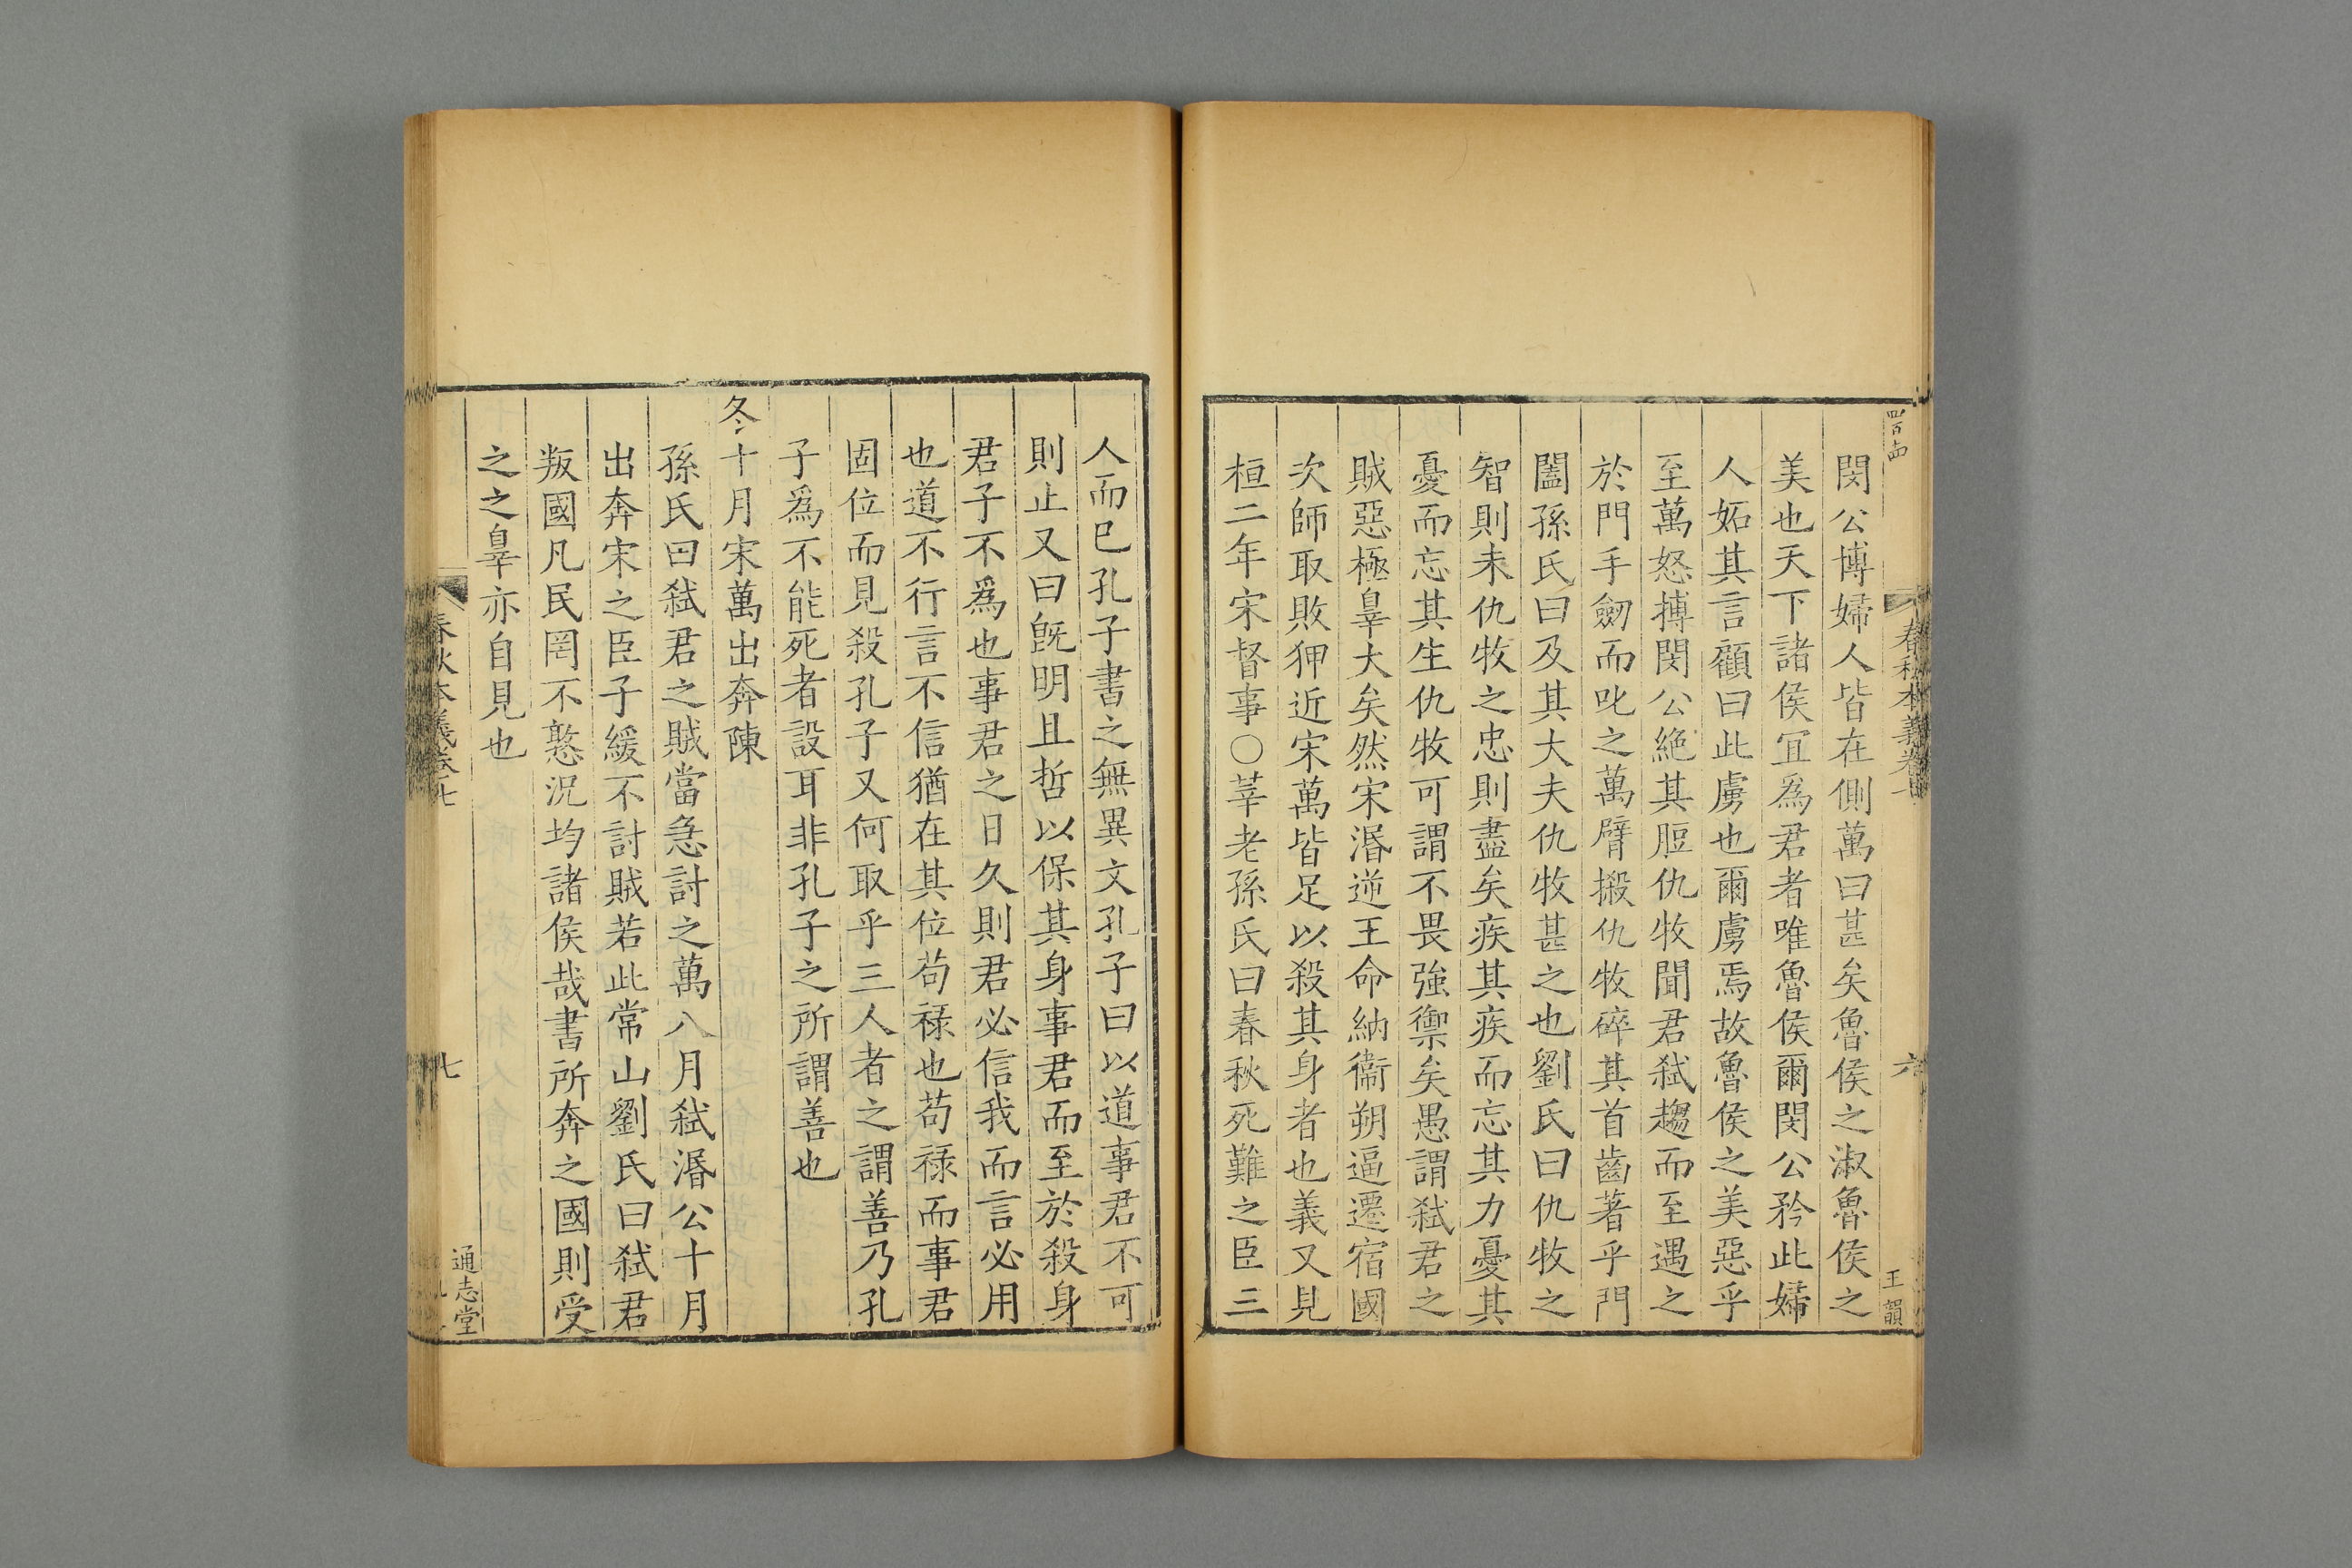 四百十四
春秋本義卷七
六
王韻
閔公博婦人皆在側萬曰甚矣魯侯之淑魯侯之
美也天下諸侯冝爲君者唯魯侯爾閔公矜此婦
人妬其言顧曰此虜也爾虜焉故魯侯之美惡乎
至萬怒搏閔公絶其脰仇牧聞君弑趨而至遇之
於門手劒而叱之萬臂摋仇牧碎其首齒著乎門
闔孫氏曰及其大夫仇牧甚之也劉氏曰仇牧之
智則未仇牧之忠則盡矣疾其疾而忘其力憂其
憂而忘其生仇牧可謂不畏強禦矣愚謂弑君之
賊惡極辠大矣然宋湣逆王命納衞朔逼遷宿國
次師取敗狎近宋萬皆足以殺其身者也義又見
桓二年宋督事○莘老孫氏曰春秋死難之臣三
人而已孔子書之無異文孔子曰以道事君不可
則止又曰旣明且哲以保其身事君而至於殺身
君子不爲也事君之日久則君必信我而言必用
也道不行言不信猶在其位苟祿也苟祿而事君
固位而見殺孔子又何取乎三人者之謂善乃孔
子爲不能死者設耳非孔子之所謂善也
冬十月宋萬出奔陳
孫氏曰弑君之賊當急討之萬八月弑湣公十月
出奔宋之臣子緩不討賊若此常山劉氏曰弑君
叛國凡民罔不憝況均諸侯哉書所奔之國則受
之之辠亦自見也
春秋本義卷七
七
通志堂